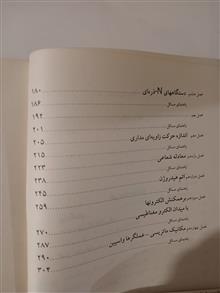 فصل هشتم دستگاههای N-ذره‌ای ۱۸۰
راهنمای مسائل ۱۸۶
فصل نهم ۱۹۲
راهنمای مسائل ۲۰۱
فصل دهم اندازه حرکت زاویه‌ای مداری ۲۰۵
راهنمای مسائل ۲۱۵
فصل یازدهم معادله شعاعی ۲۲۳
فصل دوازدهم اتم هیدروژن ۲۳۸
راهنمای مسائل ۲۴۵
فصل سیزدهم برهمکنش الکترونها ۲۵۹
با میدان الکترومغناطیسی
راهنمای مسائل ۲۷۰
فصل چهاردهم مکانیک ماتریسی - عملگرها و اسپین ۲۸۷
راهنمای مسائل ۲۹۰
۳۰۴